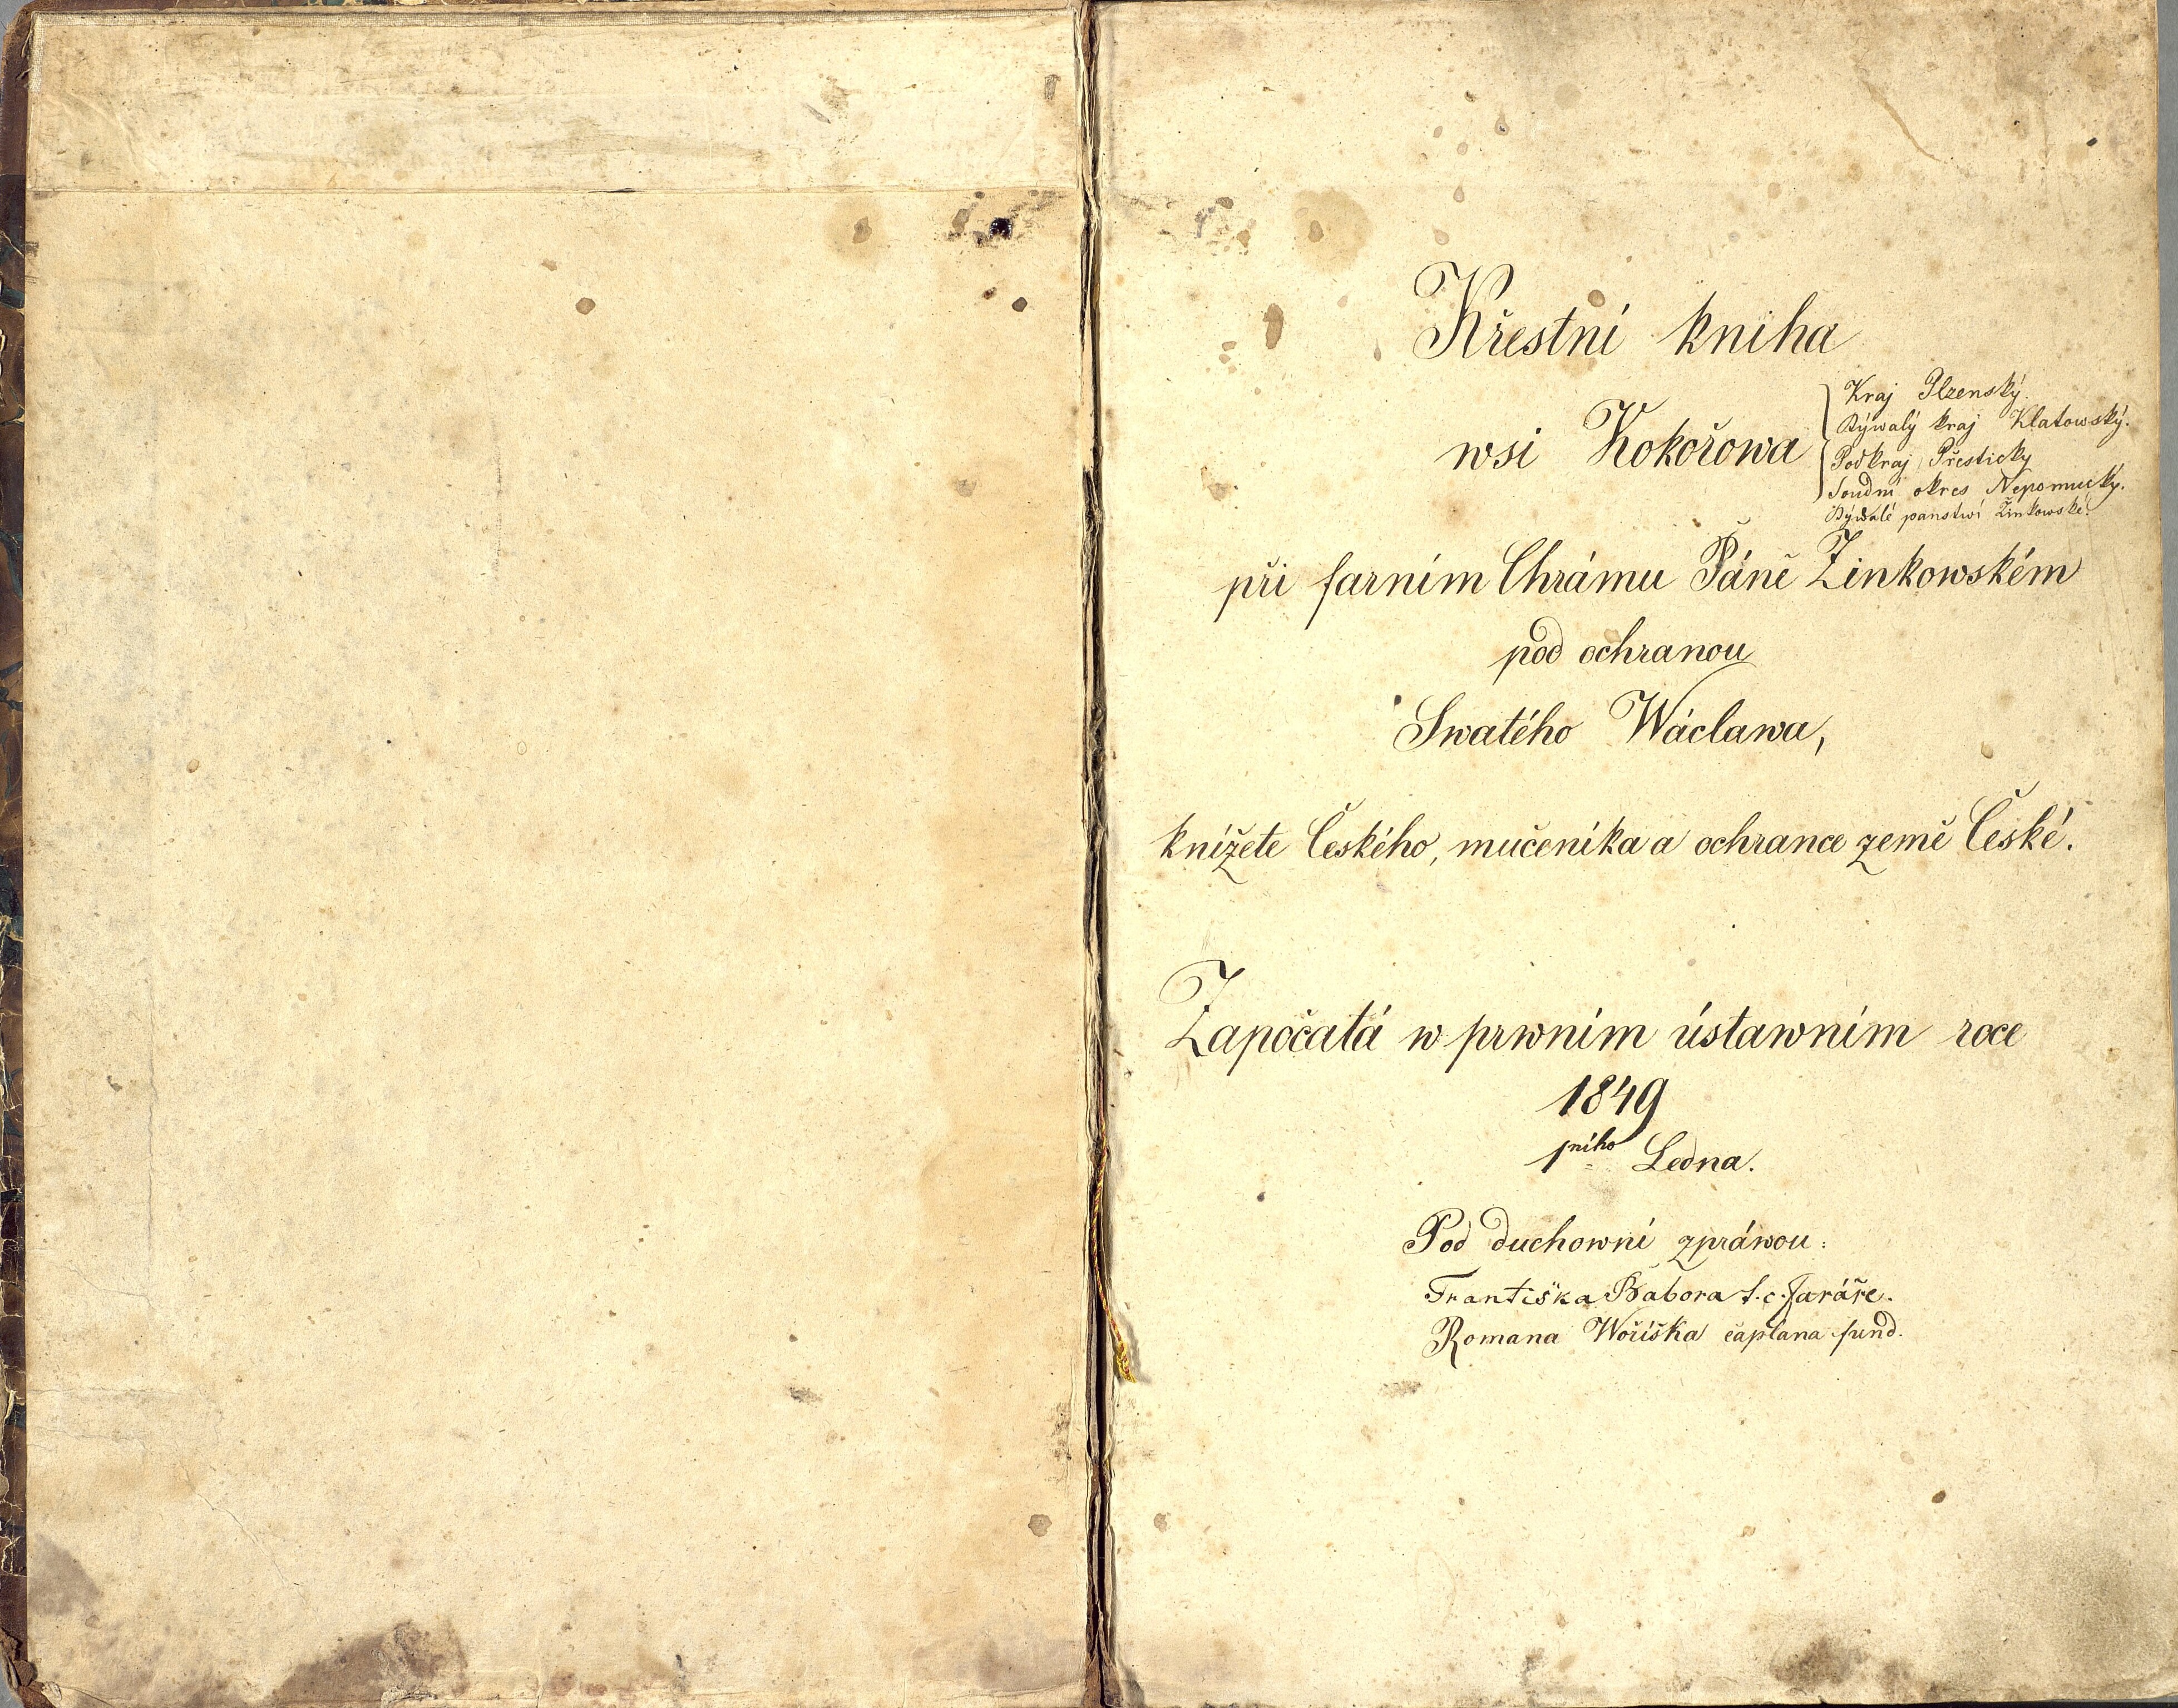 Křestní kniha
wsi Kokořowa
Kraj Plzenský.
Býwalý kraj Klatowský.
Podkraj Přestický
Soudní okres Nepomucký.
Býwalé panstwí Žinkowské.
při farním Chrámu Páně Žinkowském
pod ochranou
Swatého Wáclawa,
knížete Českého, mučeníka a ochrance země České.
Započatá w prwním ústawním roce
1849
1ního Ledna.
Pod duchowní zpráwou:
Františka Bábora t. c. Faráře.
Romana Woříška caplana fund.